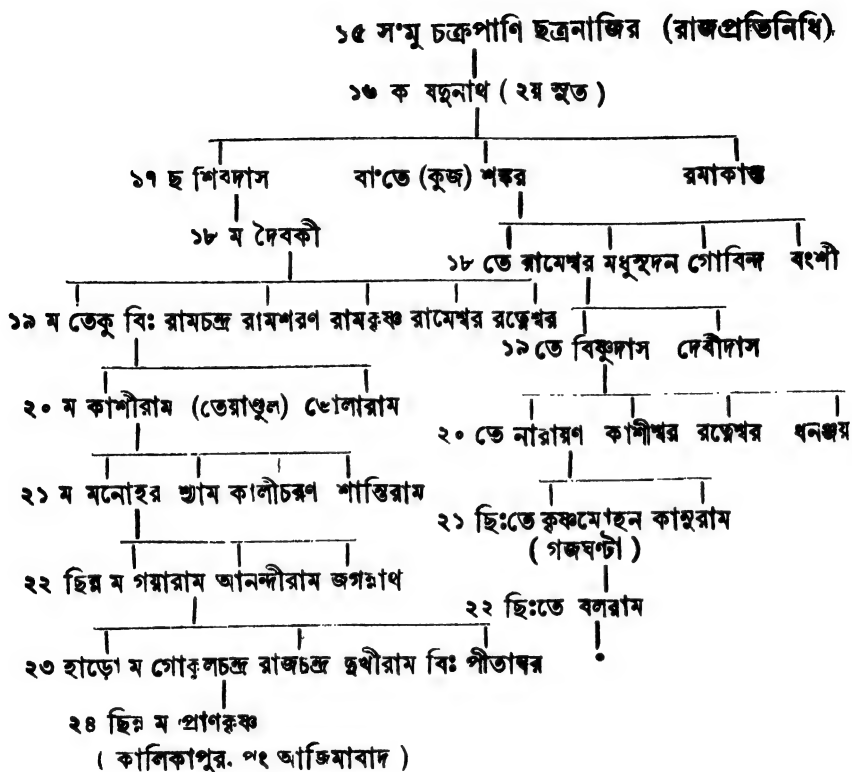 ১৫ স°মু চক্রপাণি ছত্রনাজির (রাজপ্রতিনিধি)
১৬ ক যদুনাথ ( ২য় সুত )
১৭ ছ শিবদাস বা°তে (কুজ) শঙ্কর রমাকান্ত
১৮ ম দৈবকী
১৮ তে রামেশ্বর মধুসূদন গোবিন্দ বংশী
১৯ ম তেকু বিঃ রামচন্দ্র রামশরণ রামকৃষ্ণ রামেশ্বর রত্নেশ্বর
১৯ তে বিষ্ণুদাস দেবীদাস
২০ ম কাশীরাম (তেয়াণ্ডুল) ভোলারাম
২০ তে নারায়ণ কাশীশ্বর রত্নেশ্বর ধনঞ্জয়
২১ ম মনোহর শ্যাম কালীচরণ শান্তিরাম
২১ ছি:তে কৃষ্ণমোহন কানুরাম
( গজঘণ্টা )
২২ ছিন্ন ম গয়ারাম আনন্দীরাম জগন্নাথ
২২ ছি:তে বলরাম
২৩ হাড়ো ম গোকুলচন্দ্র রাজচন্দ্র দুখীরাম বিঃ পীতাম্বর
২৪ ছিন্ন ম প্রাণকৃষ্ণ
( কালিকাপুর. পং আজিমাবাদ )